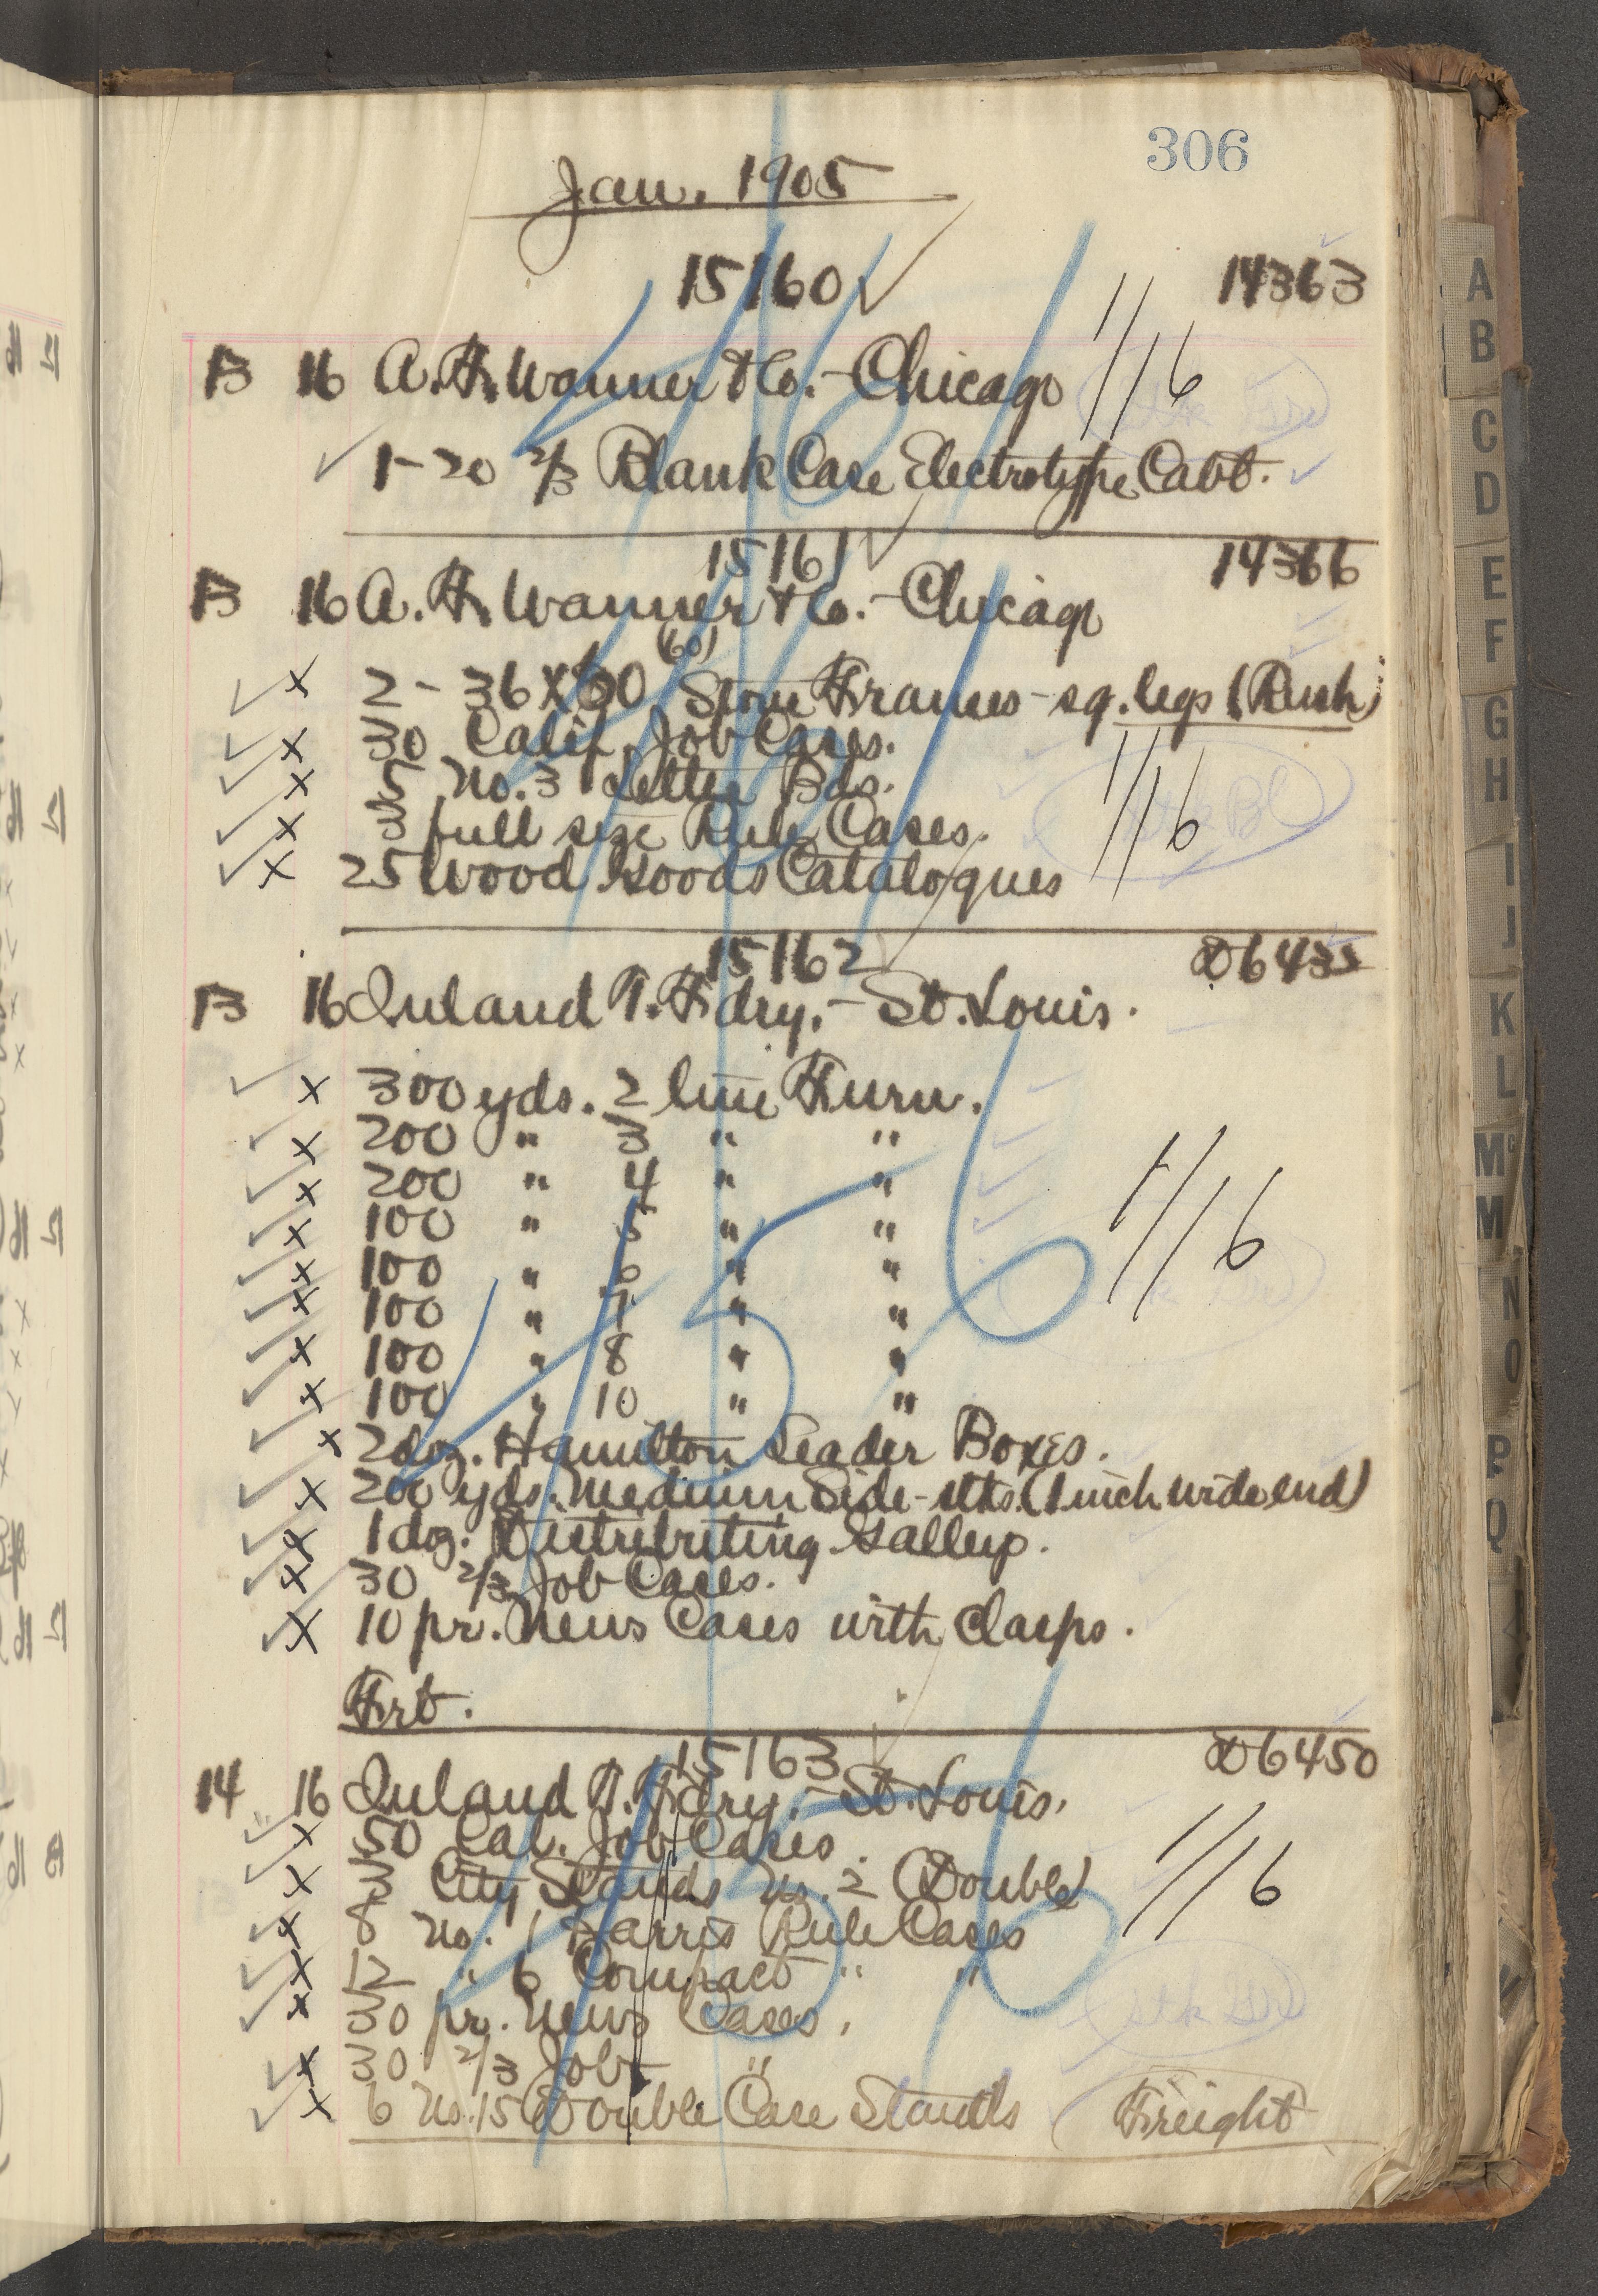 306
Jan. 1905
15160 14363
13 16 A. H. Wanner & Co. - Chicago 1/16
1-20 2/3 Blank Case Electrotype Cabt.
15161 14366
13 16 A. H. Wanner & Co. - Chicago
(60)
2 - 36 X 60 Stone Frames - sq. legs (Rush)
30 Calif. Job Cases.
5 No. 3 Letter Bds. 1/16
3 full size Rule Cases.
25 Wood Goods Catalogues
15162 D6435
13 16 Inland T. Fdry. - St. Louis.
300 yds. 2 line Furn.
200 " 3 " "
200 " 4 " "
100 " 5 " " 1/16
100 " 6 " "
100 " 7 " "
100 " 8 " "
100 " 10 " "
2 doz. Hamilton Leader Boxes.
200 yds. Medium Side-stks. (1 inch wide end)
1 doz. Distributing Galleys.
30 2/3 Job Cases.
10 pr. News Cases with Clasps.
Frt.
15163 D6450
14 16 Inland T. Fdry. - St. Louis.
50 Cal. Job Cases.
3 City Stands No. 2 (Double) 1/16
8 No. 1 Harris Rule Cases
12 " 6 Compact " "
30 pr. News Cases.
30 2/3 Job "
6 No. 15 Double Case Stands Freight
A
B
C
D
E
F
G
H
I
J
K
L
Mc
M
N
O
P
Q